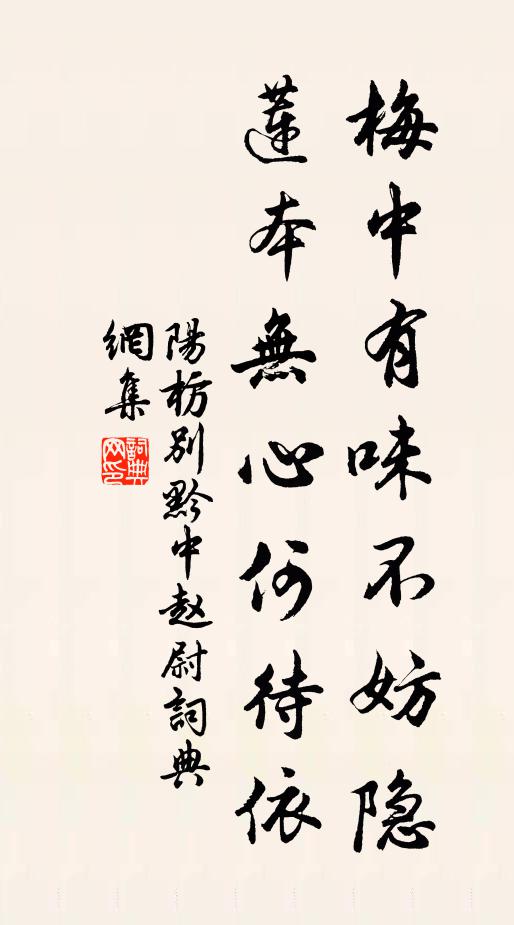 梅中有味不妨隐
蓮本無心何待依
陽枋别黔中赵尉詞典
網集
詞典
网印